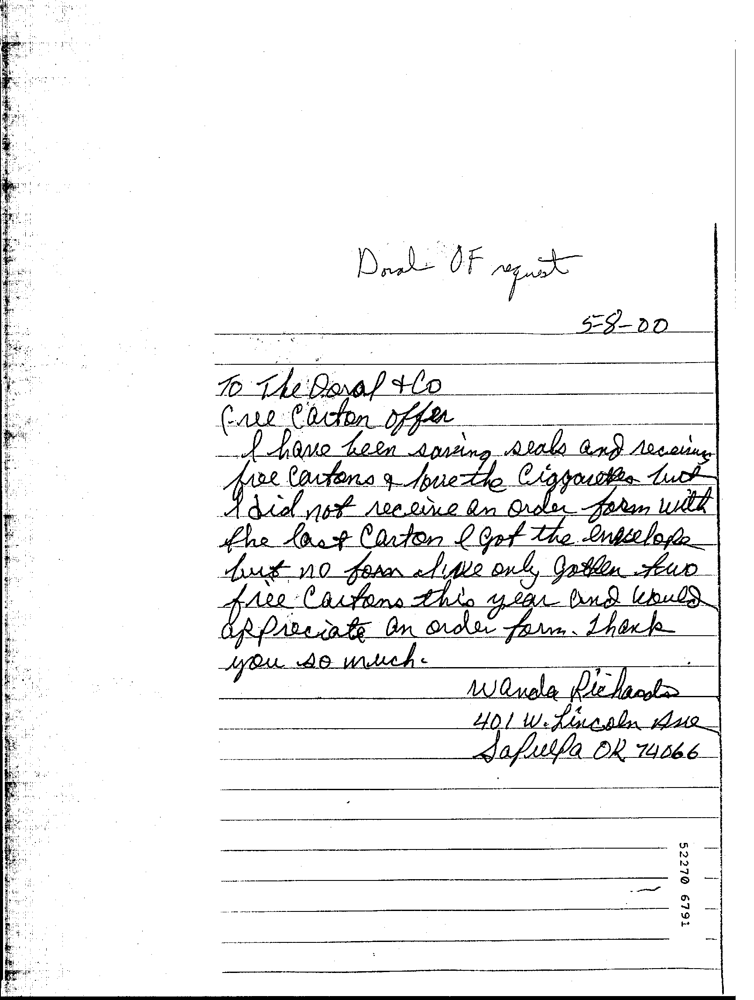 Doral OF request
5-8-00
To The Doral & Co
free Carton offer
I have been saving seals and receiving
free Cartons & love the Ciggaretes but
I did not receive an order form with
the last Carton I got the envelope
but no form I've only gotten two
free Cartons this year and would
appreciate an order form. Thank
you so much.
Wanda Richards
401 W. Lincoln Ave
Sapulpa OK 74066
52270 6791